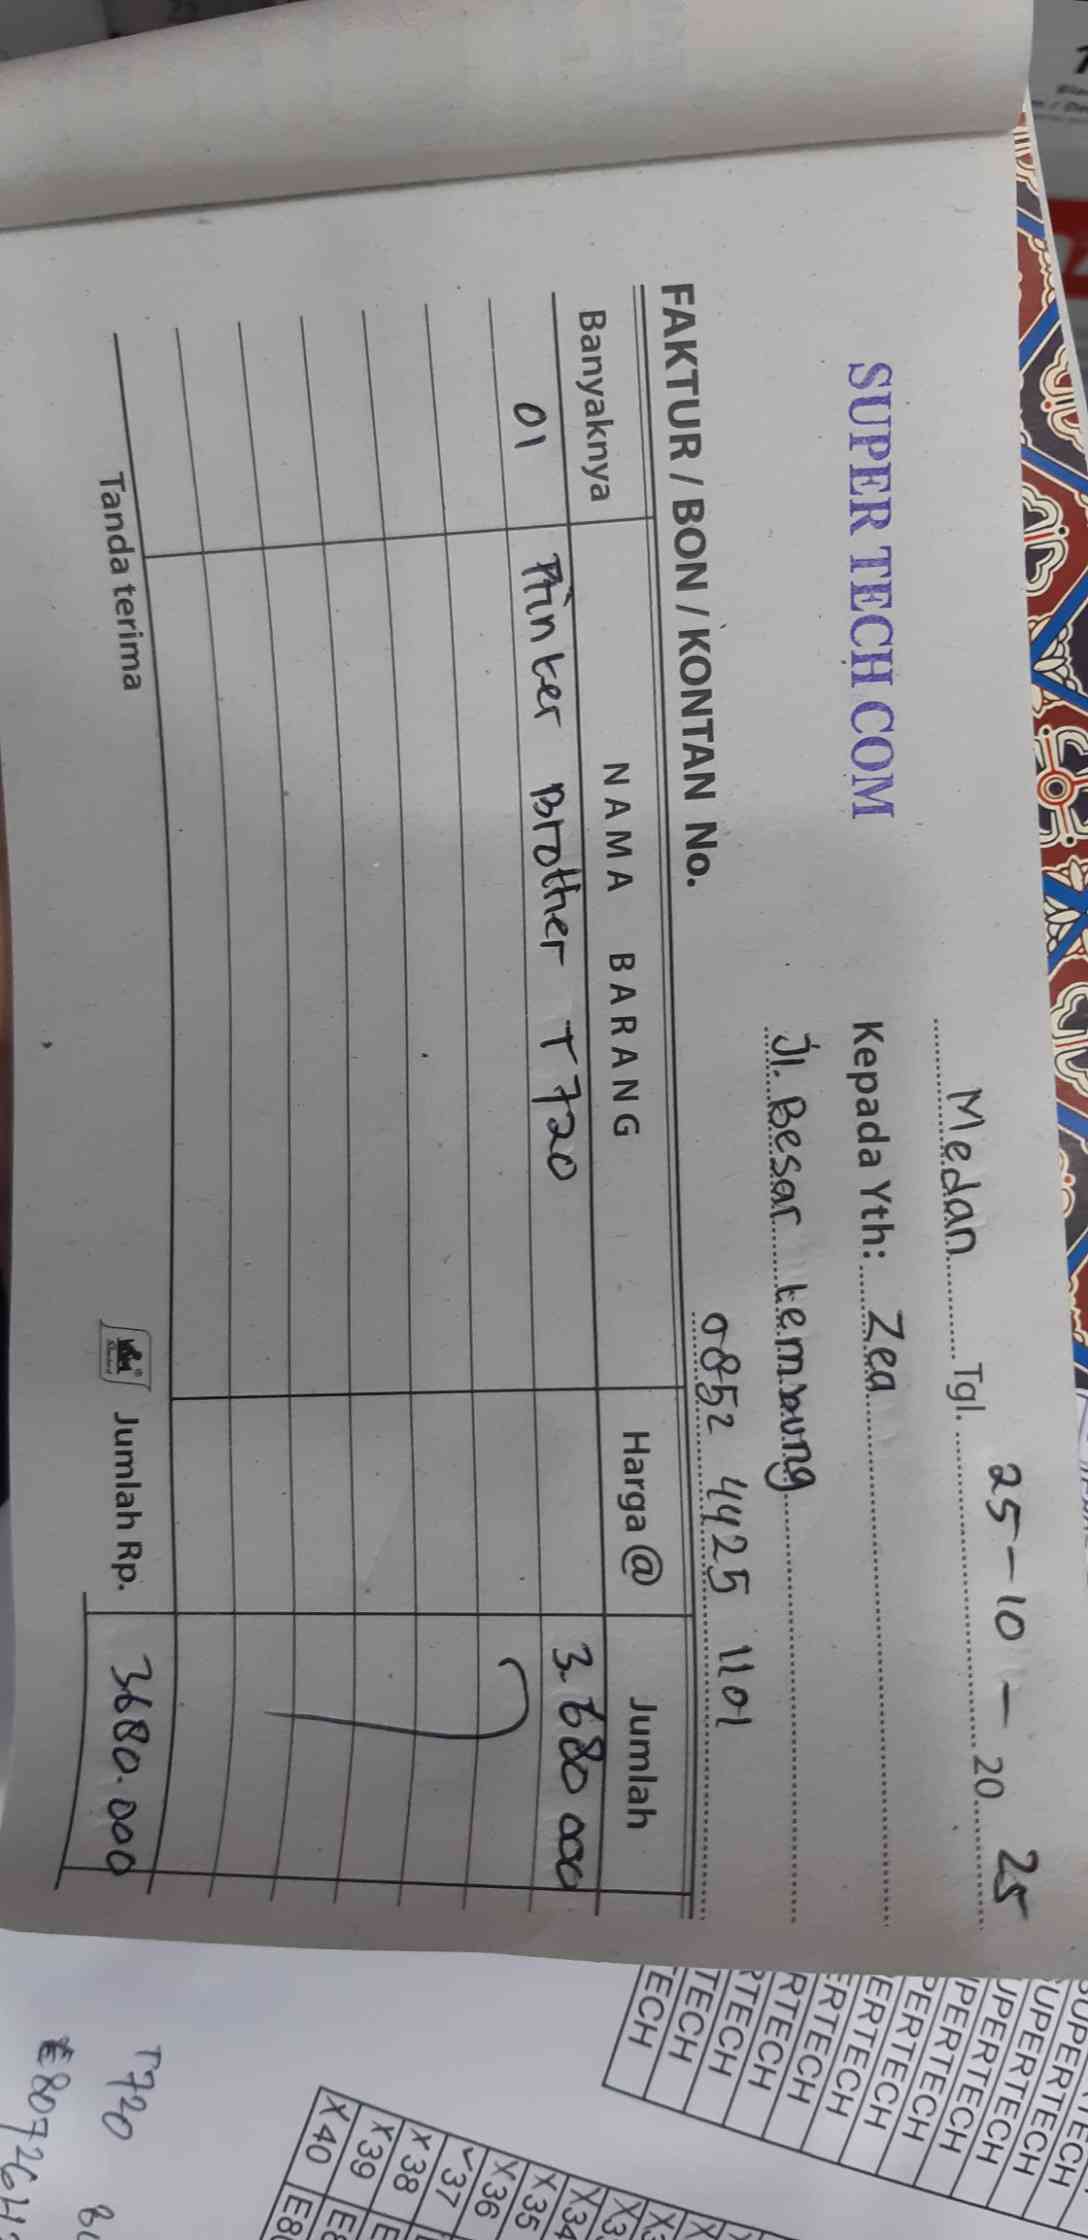 SUPER TECH COM
Medan Tgl. 25-10-2025
Kepada Yth: Zea
Jl. Besar tembung
0852 4425 1101
FAKTUR / BON / KONTAN No.
Banyaknya NAMA BARANG Harga @ Jumlah
01 Printer Brother T720 3.680 000
Tanda terima Jumlah Rp. 3680.000
UPERTECH
UPERTECH
UPERTECH
PERTECH
ERTECH
ERTECH
RTECH
RTECH
TECH
TECH
X34
X35
X36
37
X38
X39
X40
T720